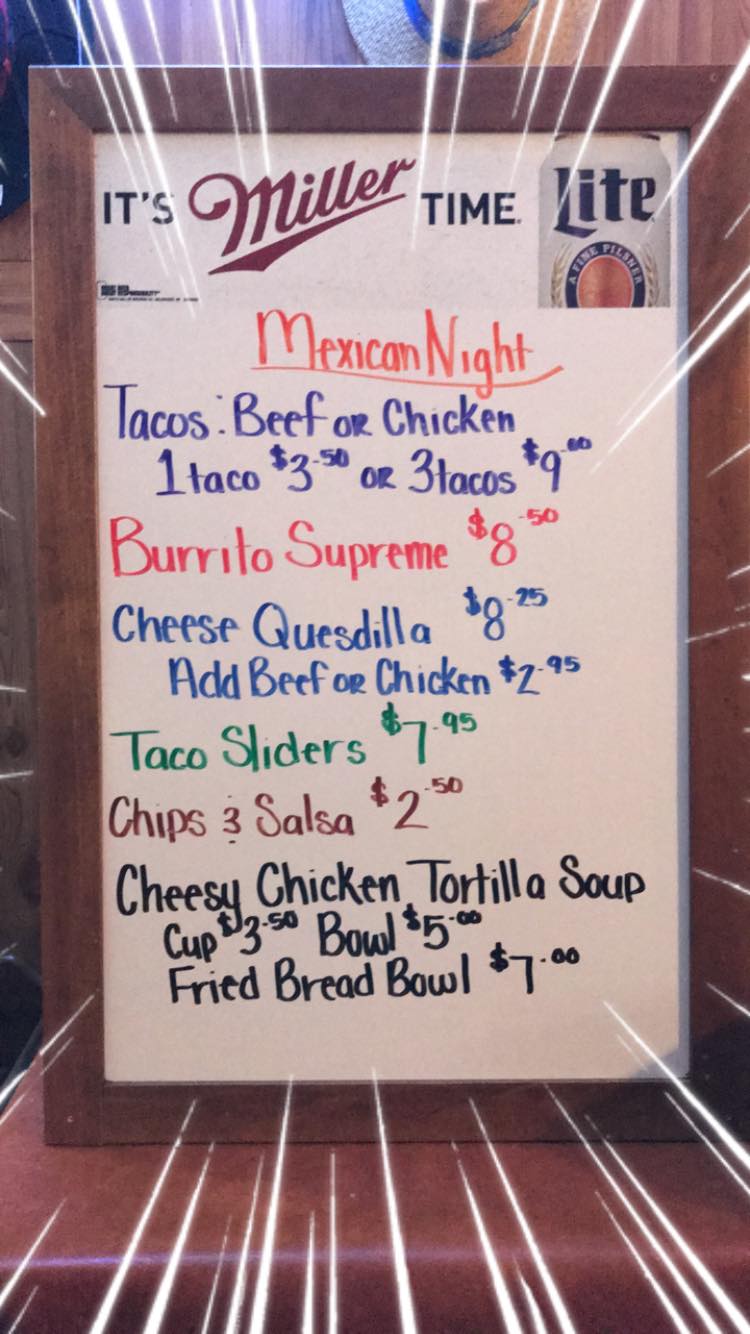 IT'S Miller TIME.
Lite
A FINE PILSNER
Mexican Night
Tacos: Beef or Chicken
1 taco $3.50 or 3 tacos $9.00
Burrito Supreme $8.50
Cheese Quesdilla $8.25
Add Beef or Chicken $2.95
Taco Sliders $7.95
Chips & Salsa $2.50
Cheesy Chicken Tortilla Soup
Cup $3.50 Bowl $5.00
Fried Bread Bowl $7.00